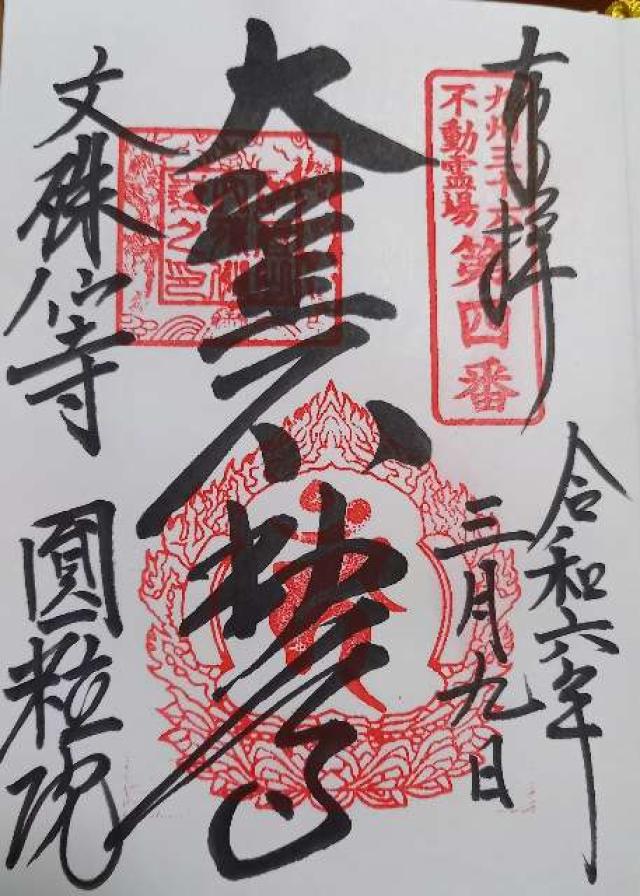 奉拝
九州三十六
不動霊場 第四番
令和六年
三月九日
大聖不
文殊仙寺
圓粒院